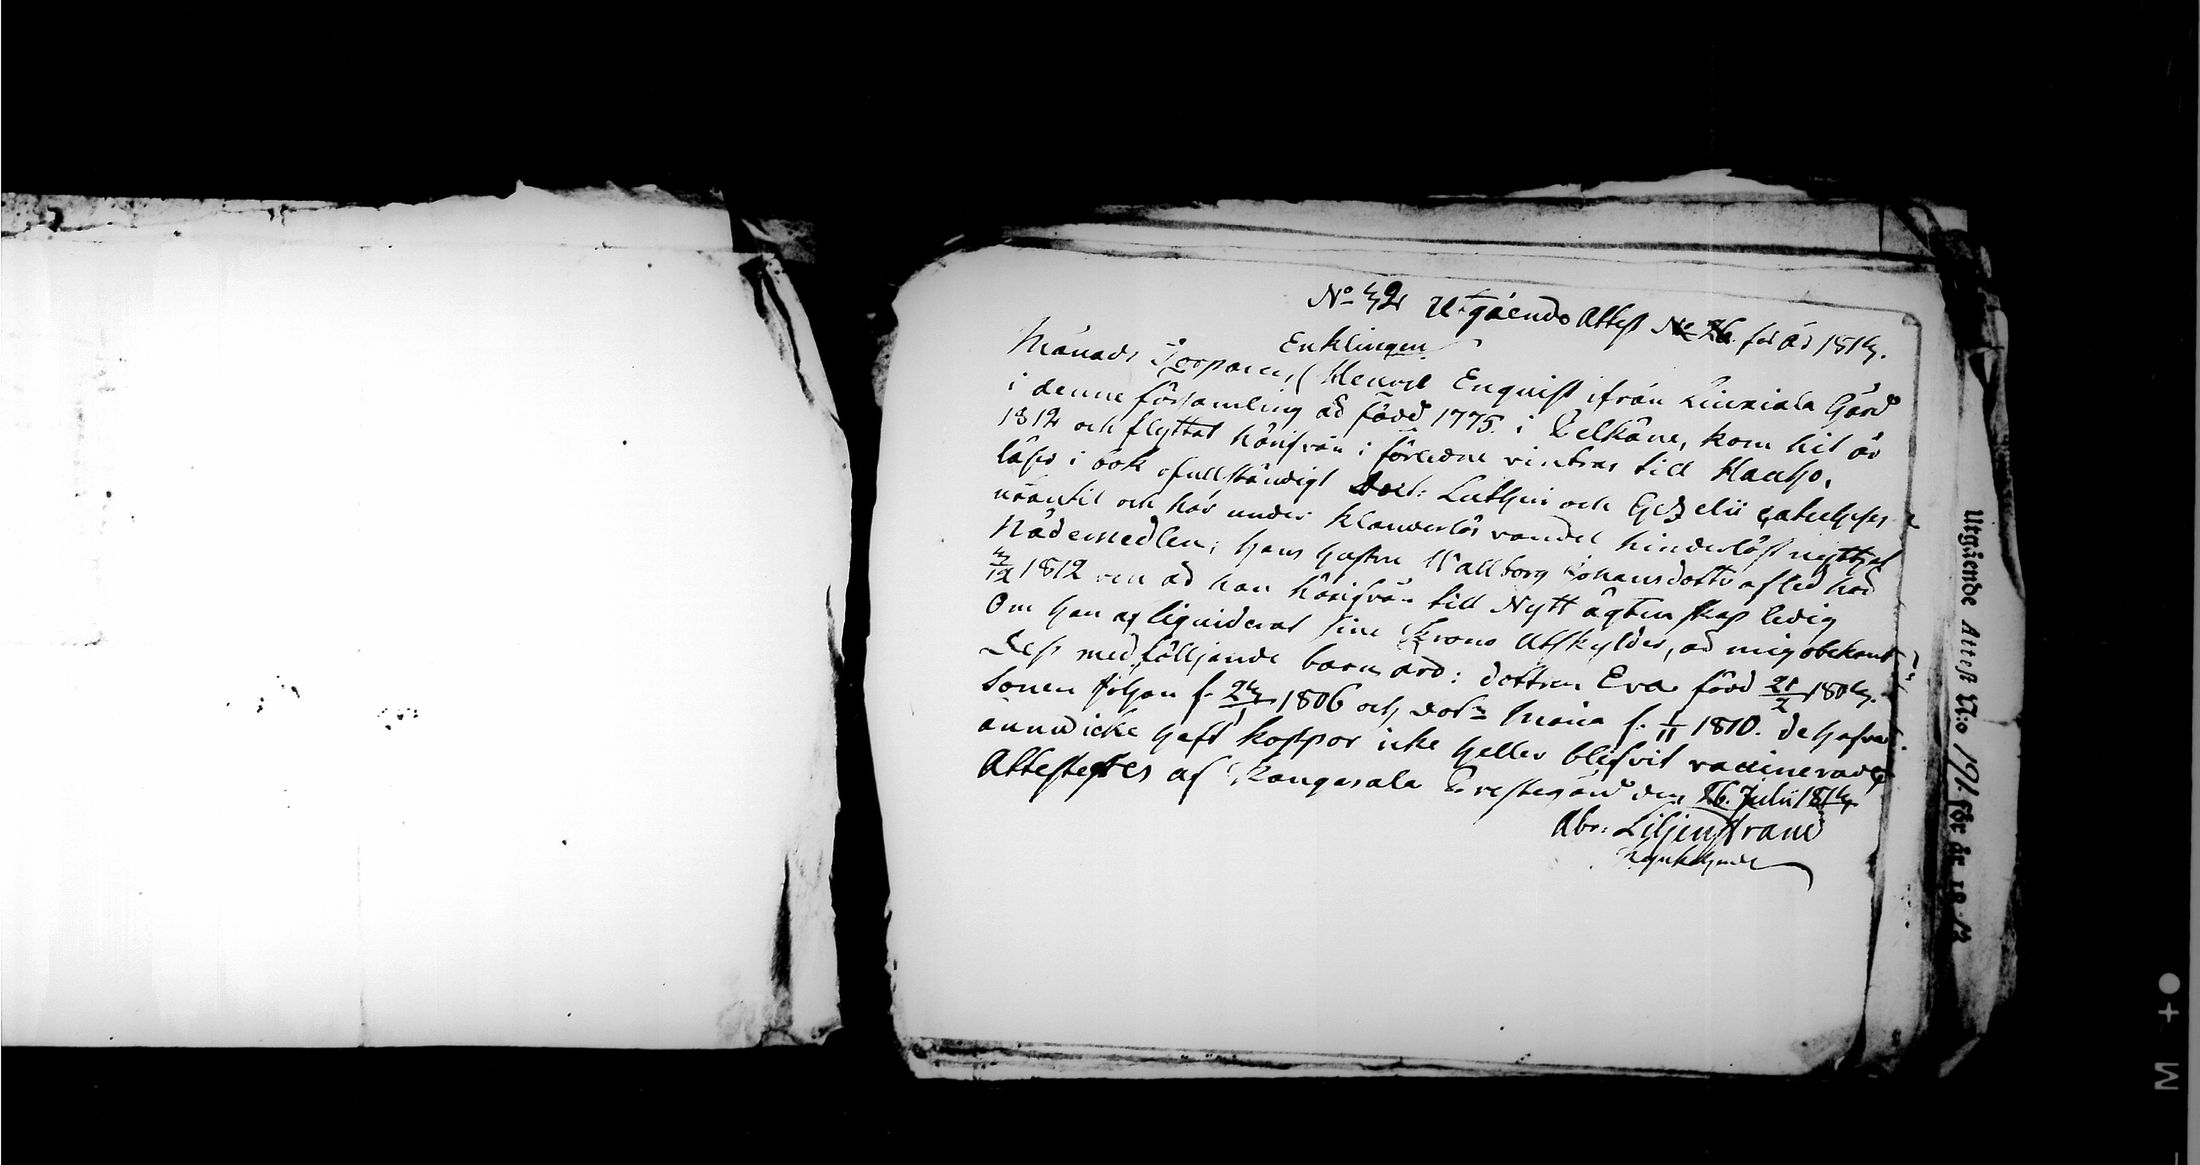 No 42 Utgående Attest No 26. för år 1814.
Enklingen
Månads Torparen, Henric Enquist ifrån Liuxiala Gård
i denne församling är född 1775. i Pelkäne, kom hit år
1812 och flyttat härifrån i förledne vintras till Hauho,
läser i bok ofullständigt Doct: Lutheri och Gezelii Catecheser
utantil och har under klanderlös vandel hinderlöst nyttjat
Nådemedlen; hans hustru Wallborg Johansdotter afled här
4/12 1812 men är han härifrån till Nytt ägtenskap ledig
Om han af liquiderat sine Krono Utskylder, är mig obekant
Dess medföljande barn äro: dottren Eva född 21/2 1804.
Sonen Johan f. 24/1 1806 och dotr Maria f. 1/11 1810. de hafva
ännu icke haft koppor icke heller blifvit vaccinerade
Attesteres af Kangasala Prestegård den 26. Julii 1814
Abr: Liljenstrand
Utgående Attest N:o 191. för år 18
M +